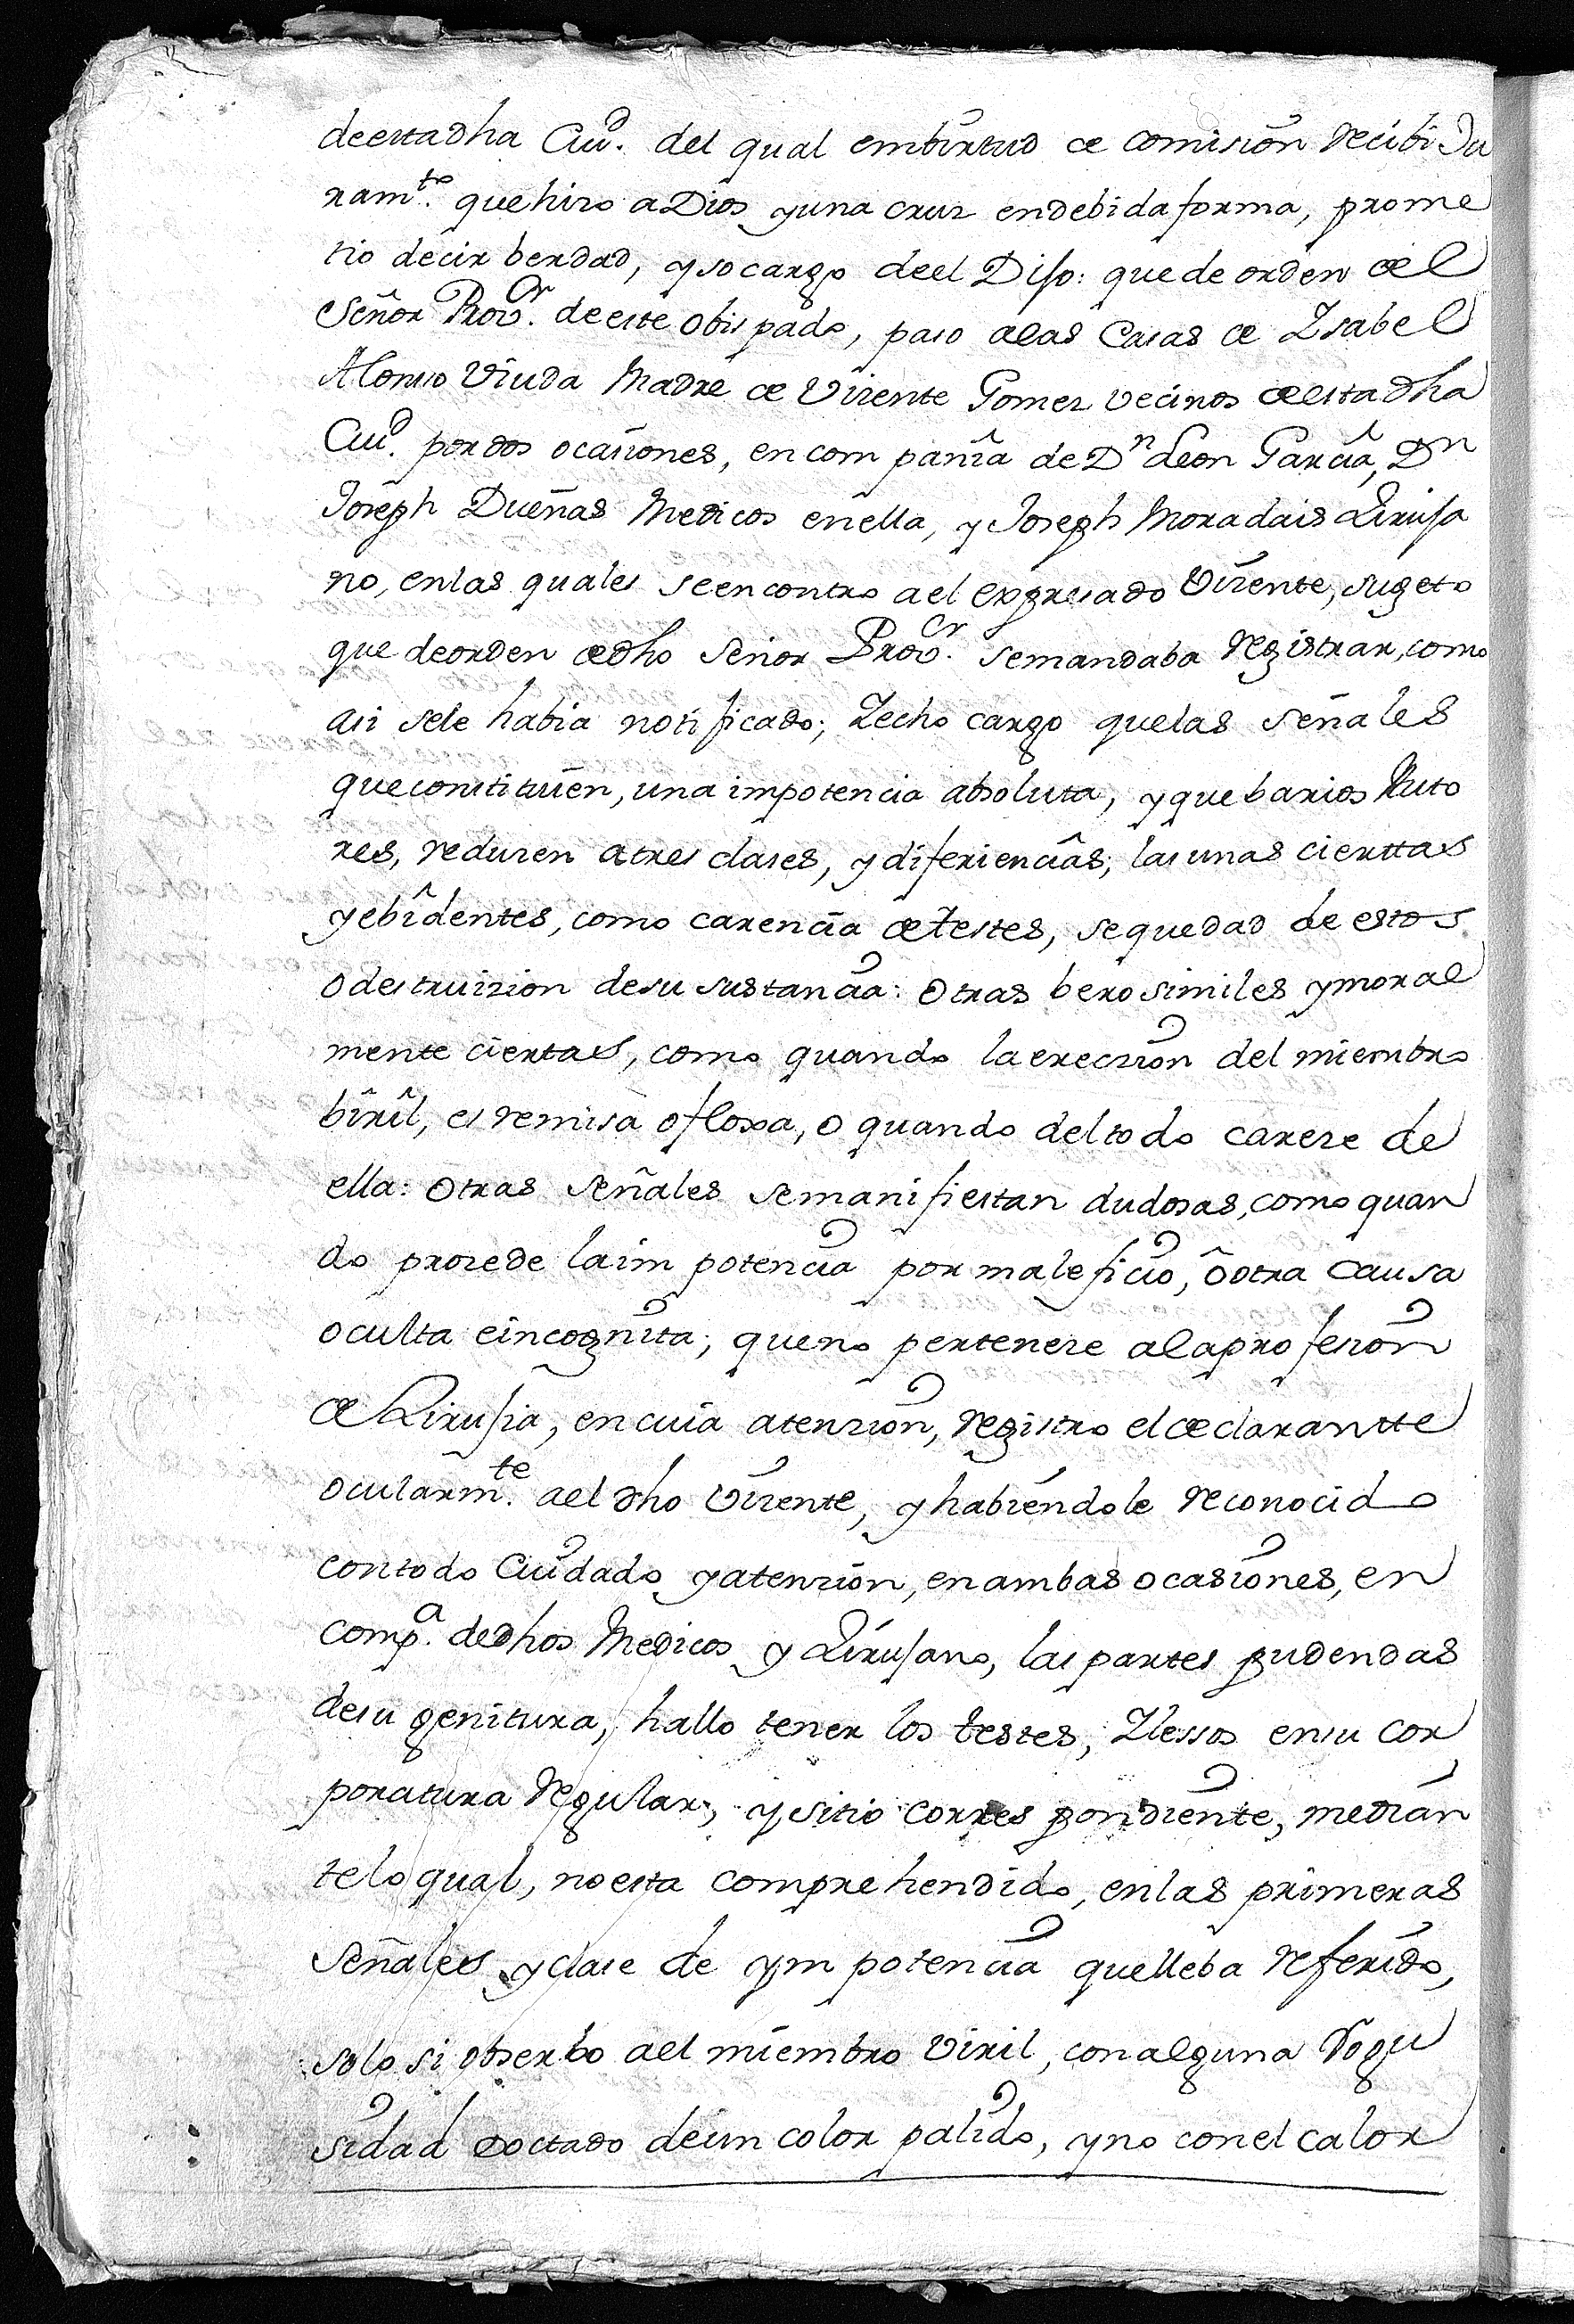 de esta dha Ciud. del qual em birtud de Comision recibi Ju
ramto. que hizo a Dios y una cruz en debida forma, prome
tio decir berdad, y so cargo de el Dijo: que de orden del
Señor Provor. de este obispado, paso a las Casas de Ysabel
Alonso Viuda Madre de Vizente Gomez vecinos de esta dha
Ciud. por dos ocasiones, en compañia de Dn Leon Garcia, Dn
Joseph Dueñas Medicos en ella, y Joseph Moradais Ziruja
no, en las quales se encontro a el expresado Vizente, sugeto
que de orden de dho Señor Provor. se mandaba registrar, como
asi se le habia notificado; Zecho cargo que las señales
que constituien, una impotencia absoluta, y que barios Auto
res, reduzen a tres clases, y diferiencias; las unas cierttas
y ebidentes, como carencia de testes, sequedad de estos
o destruizion de su sustancia: Otras berosimiles y moral
mente ciertas, como quando la ereczion del miembro
biril, es remisa o floxa, o quando del todo careze de
ella: Otras señales se manifiestan dudosas, como quan
do prozede la impotencia por maleficio, ô otra causa
oculta e incognita; que no perteneze a la profesion
de Zirujia, en cuia atenzion, registro el declarantte
ocularmte. a el dho Vizente, y habiendole reconocido
con todo Cuidado y atenzion, en ambas ocasiones, en
compa. de dhos Medicos y Zirujano, las partes pudendas
de su genitura, hallo tener los testes, Ylessos en su cor
poratura regular, y sitio correspondiente, median
te lo qual, no esta comprehendido, en las primeras
Señales y clase de ympotencia que lleba referido,
solo si obserbo a el miembro Viril, con alguna rogu
sidad doctado de un color palido, y no con el calor